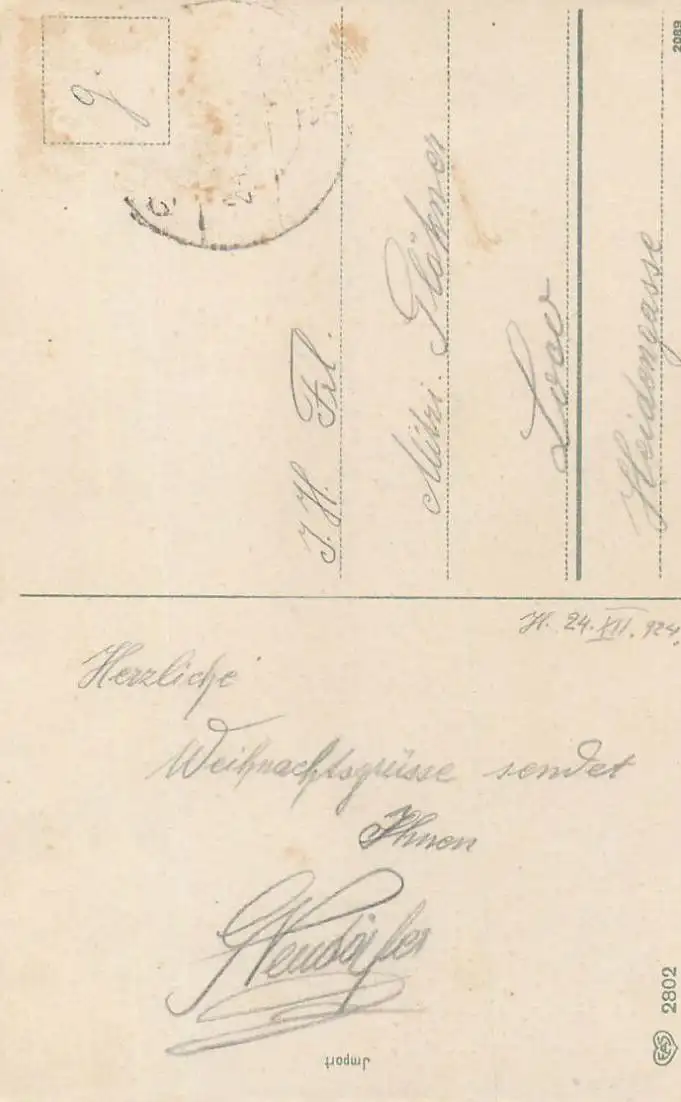 g.
I. H. Frl.
Mitzi. Glökner
Heidengasse
2089
H. 24. XII. 924.
Herzliche
Weihnachtsgrüsse sendet
Ihnen
Neudörfer
Import
EAS 2802